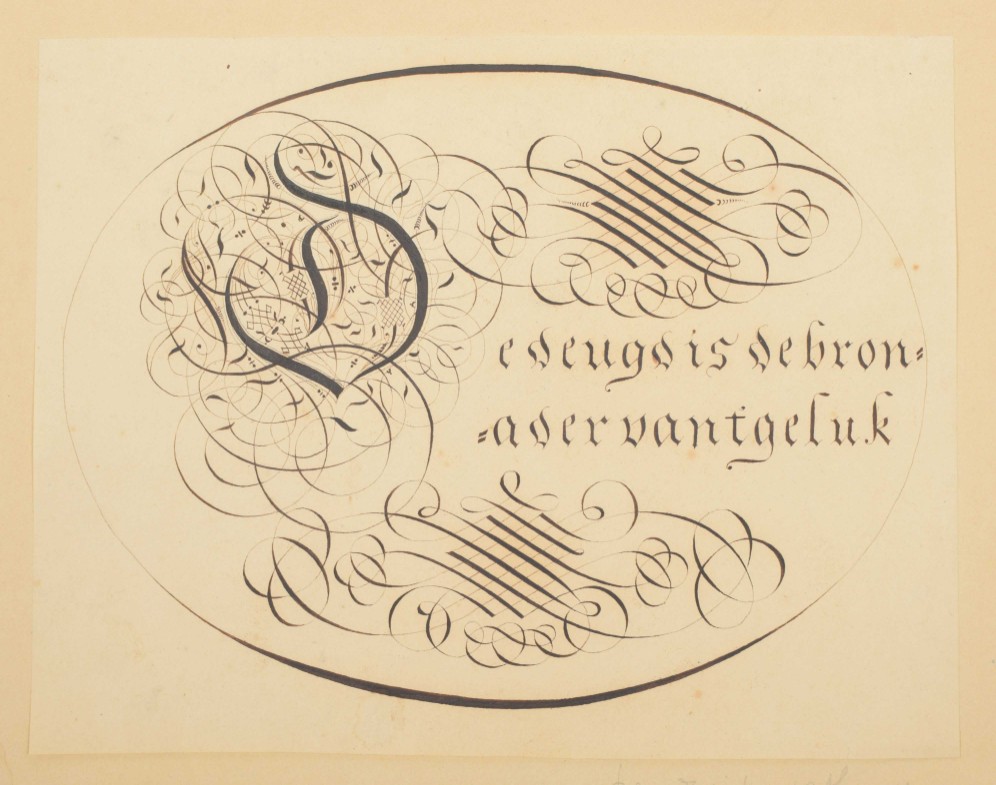 De deugd is de bron=
=ader van t geluk